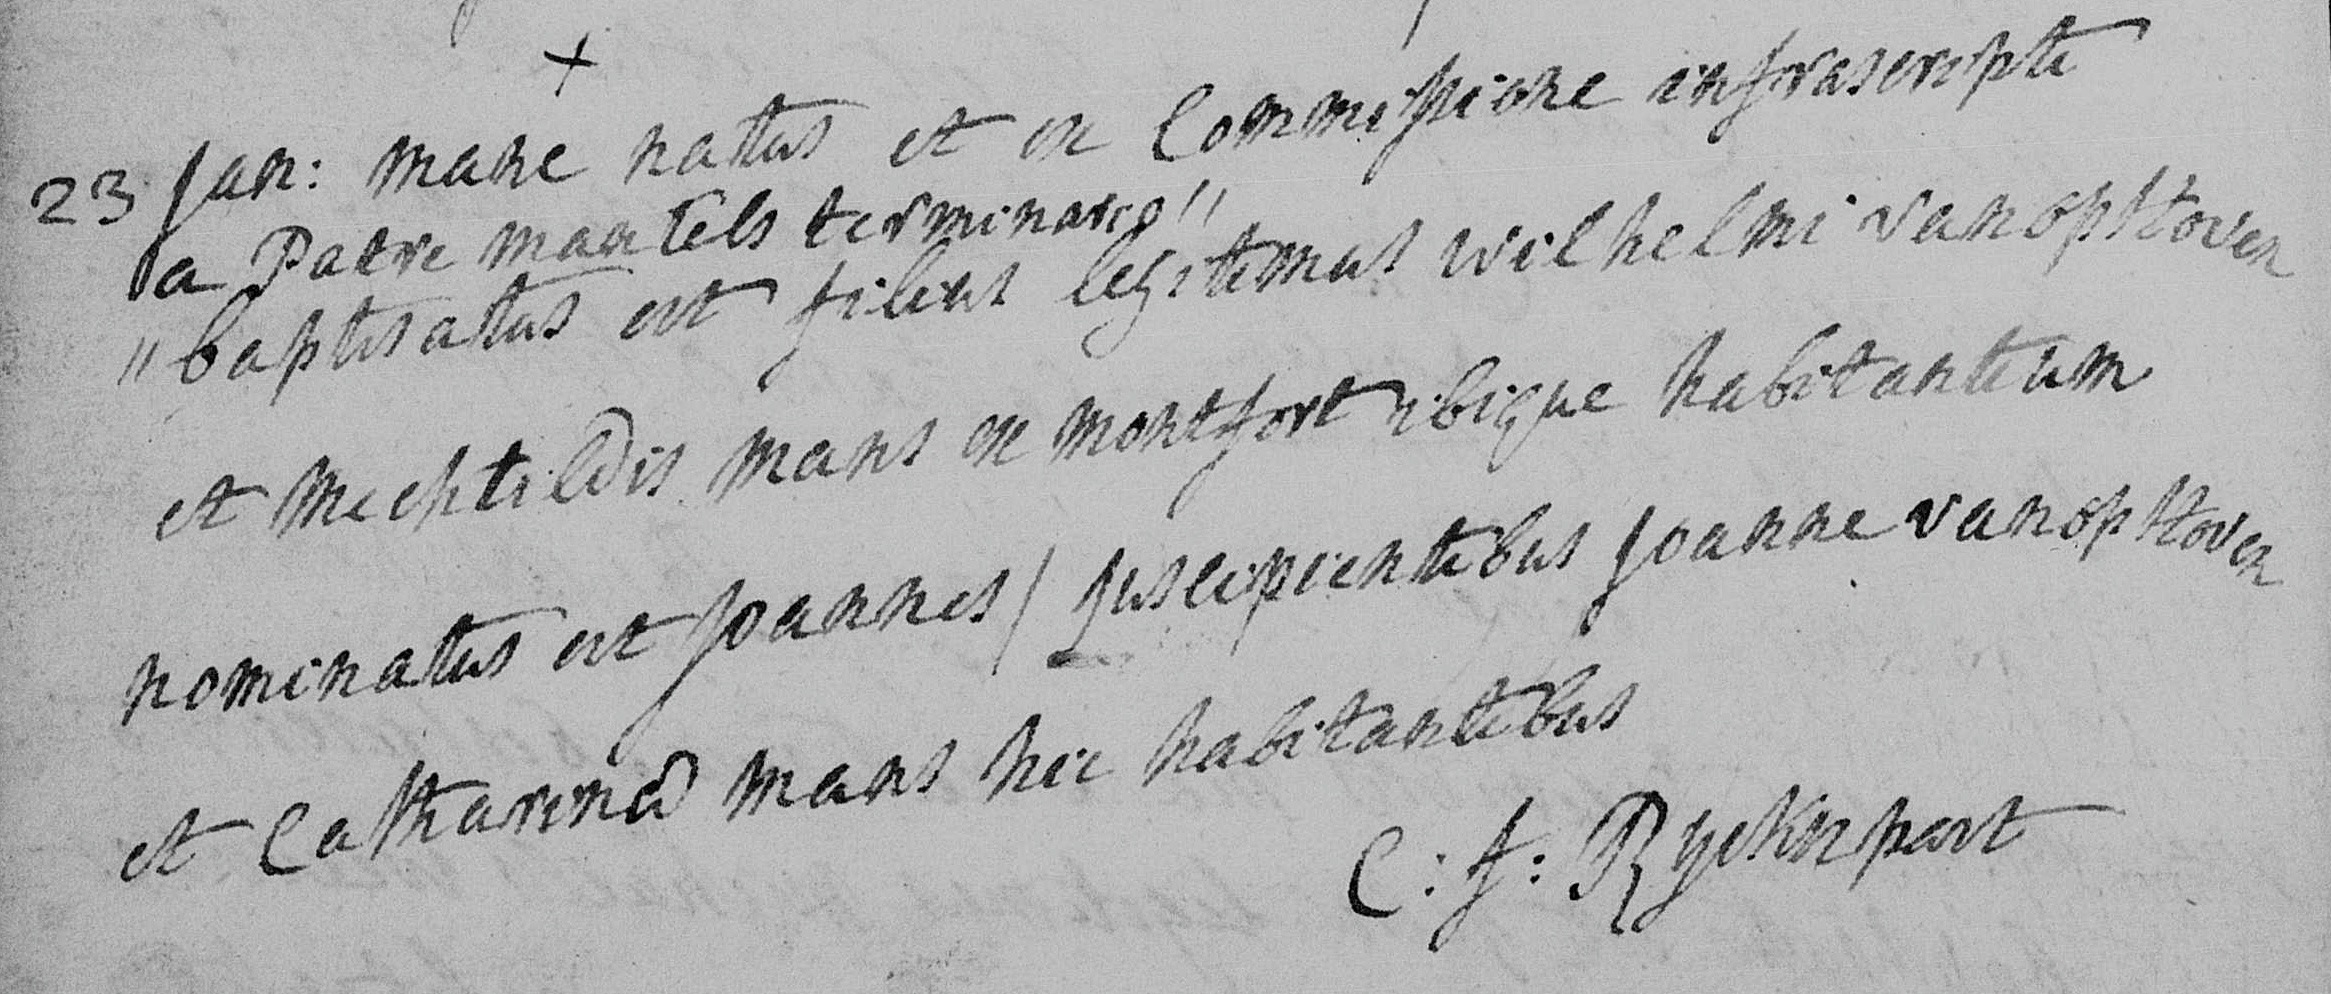 +
23 Jan: mane natus et ex Commissione infrascripti
a Patre martels terminario"
"baptisatus est filius legitimus wilhelmi van opHoven
et Mechtildis mans ex montfort ibique habitantium
nominatus est Joannes / suscipientibus Joanne van opHoven
et Catharinâ mans hic habitantibus
C: J: Ryckenpart